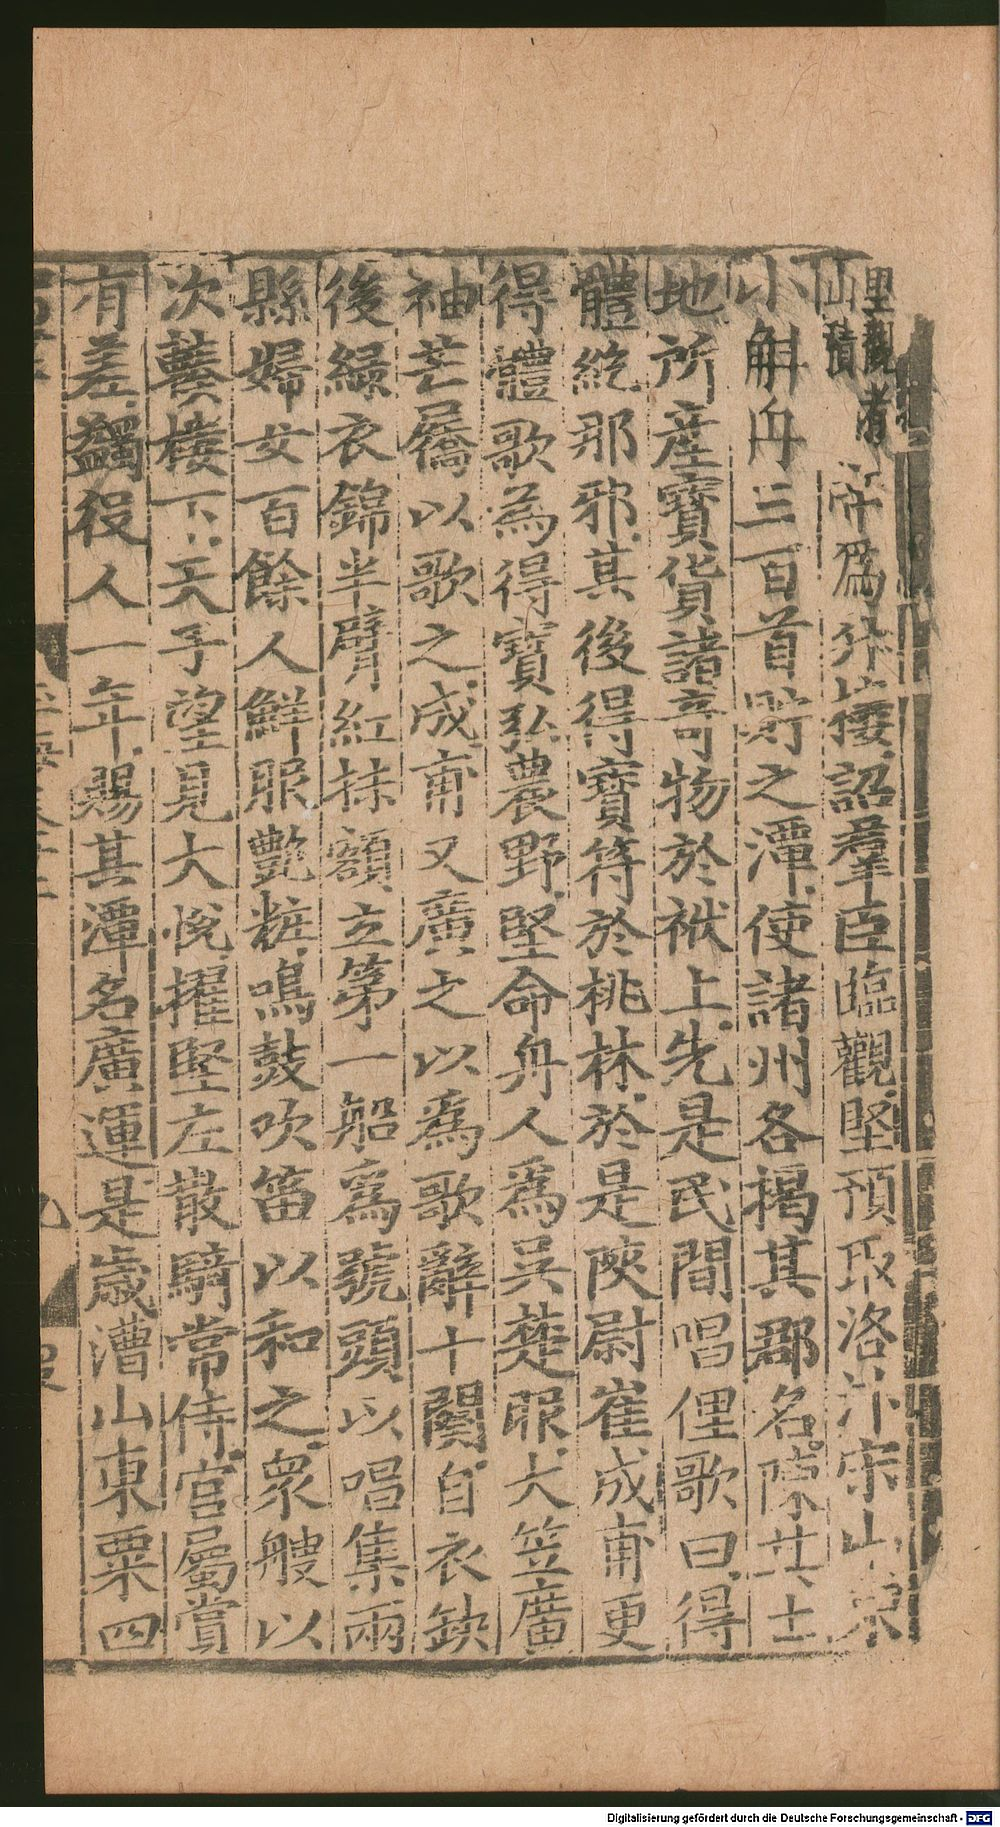 里觀者
山積
帝爲升樓詔羣臣臨觀堅預取洛汴宋山東
小斛舟三百首貯之潭使諸州各揭其郡名陳其土
地所産寶貨諸奇物於栿上先是民間唱俚歌曰得
體紇那邪其後得寶符於桃林於是陜尉崔成甫更
得體歌為得寶弘農野堅命舟人為吳楚服大笠廣
袖芒屩以歌之成甫又廣之以爲歌辭十闋自衣缺
後綠衣錦半臂紅抹額立第一船爲號頭以唱集兩
縣婦女百餘人鮮服艷粧鳴鼓吹笛以和之衆艘以
次輳樓下天子望見大恱擢堅左散騎常侍官屬賞
有差蠲役人一年賜其潭名廣運是歲漕山東粟四
Digitalisierung gefördert durch die Deutsche Forschungsgemeinschaft - DFG